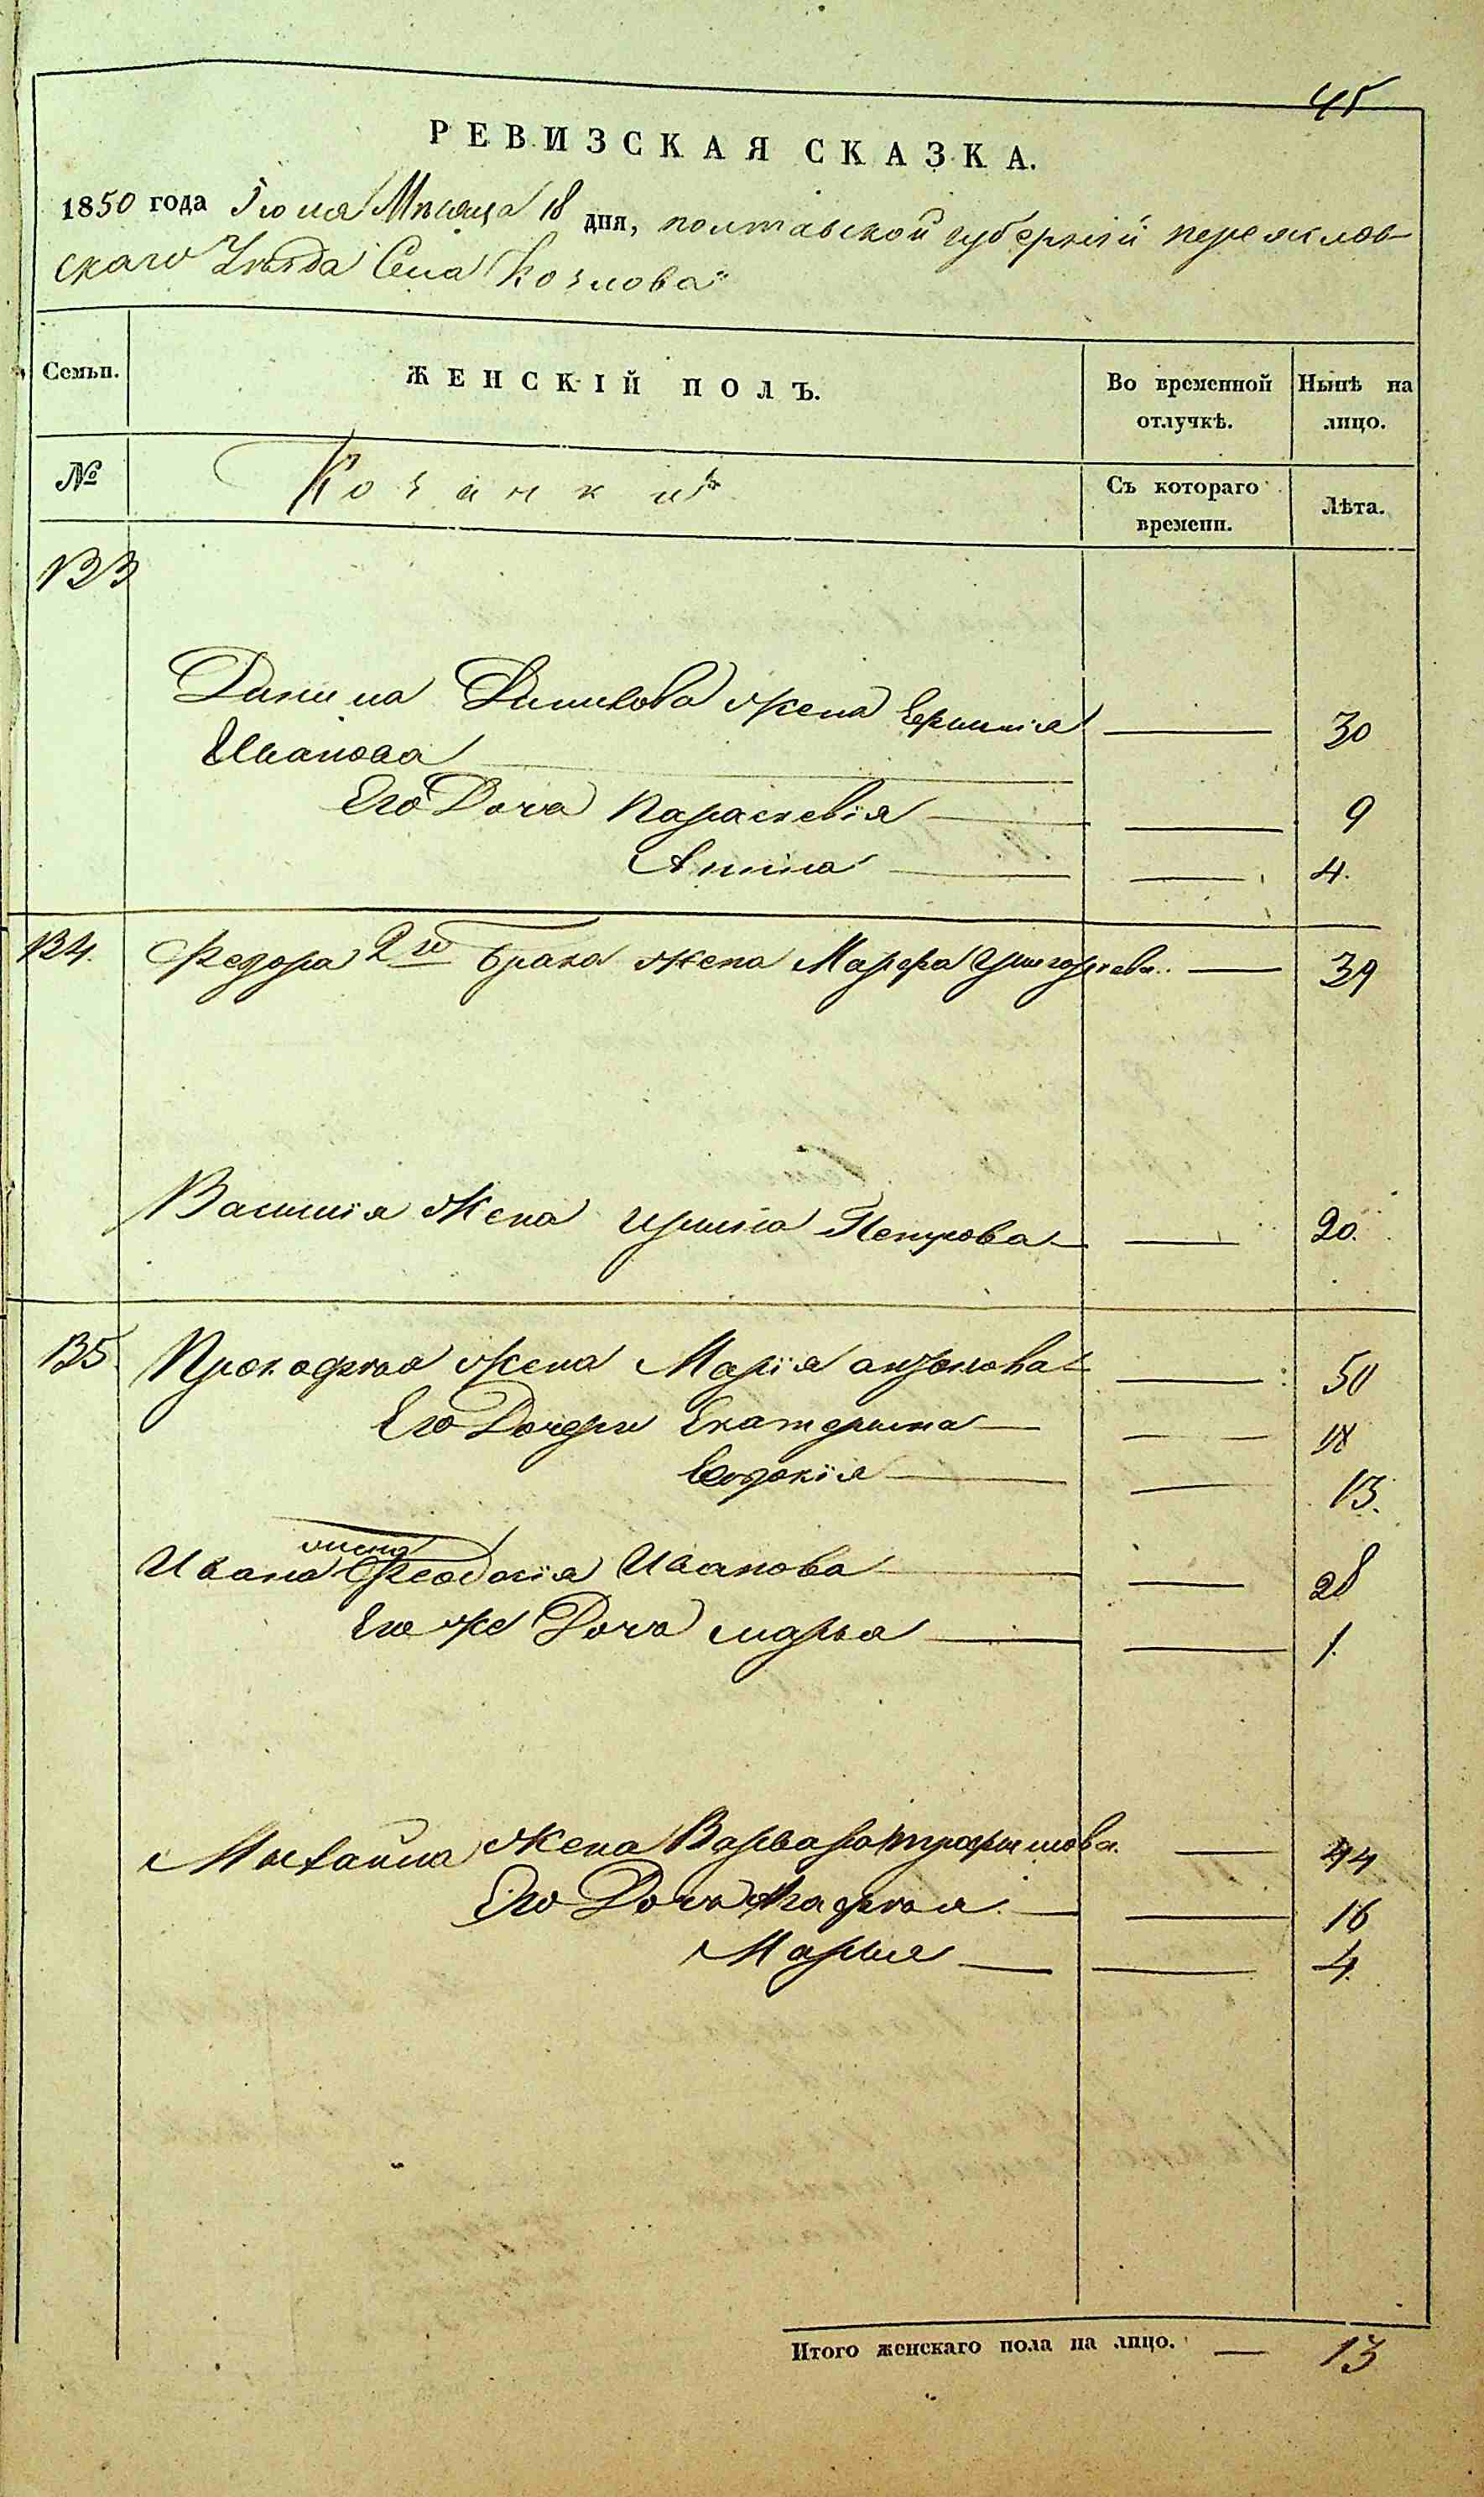 45
РЕВИЗСКАЯ СКАЗКА.
1850 года Іюля Мѣсяца 18 дня, полтавской губерніи переяслов-
скаго Уѣзда Села Козлова
Семьи.
ЖЕНСКІЙ ПОЛЪ.
Во временной отлучкѣ.
Ныпѣ на лицо.
№
Козачки
Съ котораго времени.
Лѣта.
133
Данила жена 30
Иванова
Его Доча Параскевія 9
Анна 4.
134. Федора 2го брака жена Марфа Григорьева 39
Василія Жена Ирина Петрова 20.
135. Прокофья жена Марія антонова 50
Его Дочери Екатерина 18
Евдокія 13.
жена
Ивана Феодосія Иванова 28
Его же Доча марья 1.
Михайла жена Варвара трофимова 44
Его Доча Агафья 16
Марья 4.
Итого женскаго пола на лицо. — 13